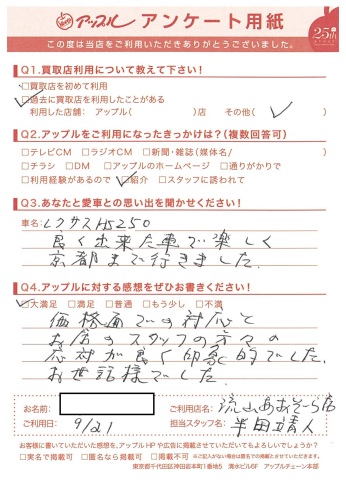 アップル アンケート用紙
25th
この度は当店をご利用いただきありがとうございました。
Q1.買取店利用について教えて下さい！
□買取店を初めて利用
☑過去に買取店を利用したことがある
利用した店舗： アップル（　　　）店　その他（ ✓ ）
Q2.アップルをご利用になったきっかけは？（複数回答可）
□テレビCM □ラジオCM □新聞・雑誌（媒体名/　　　）
□チラシ □DM □アップルのホームページ □通りがかりで
□利用経験があるので ☑紹介 □スタッフに誘われて
Q3.あなたと愛車との思い出を聞かせください！
車名：レクサスHS250
良く出来た車で楽しく
京都まで行きました.
Q4.アップルに対する感想をぜひお書きください！
☑大満足 □満足 □普通 □もう少し □不満
価格面での対応と
お店のスタッフの方々の
応対が良く印象的でした.
お世話様でした.
お名前：
ご利用店名：流山おおぞら店
ご利用日： 9/21
担当スタッフ名：半田靖人
お客様に書いていただいた感想を、アップルHPや広告に掲載させていただいてもよろしいでしょうか？
□実名で掲載可 □匿名なら掲載可 □掲載不可 ※ご記入がない場合は匿名での掲載とさせていただきます。
東京都千代田区神田岩本町1番地5 清水ビル6F アップルチェーン本部